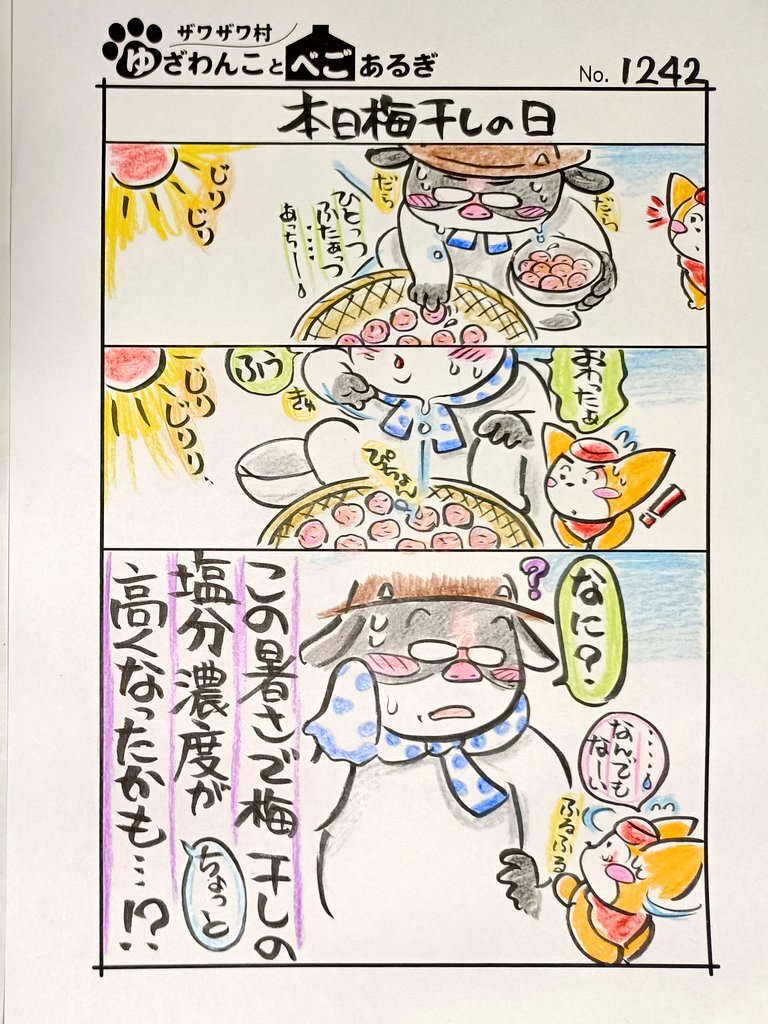 ザワザワ村
ゆざわんことべごあるぎ
No. 1242
本日梅干しの日
だら
だら
ひとっつ
ふたぁっつ
・・・・
あっちー
じり
じり
おわったぁ
ふう
きゅ
ぴちょん
じり
じりり
!!
?
なに?
・・・・
なんでも
なーい
ふるふる
この暑さで梅干しの
塩分濃度が
ちょっと
高くなったかも…!?